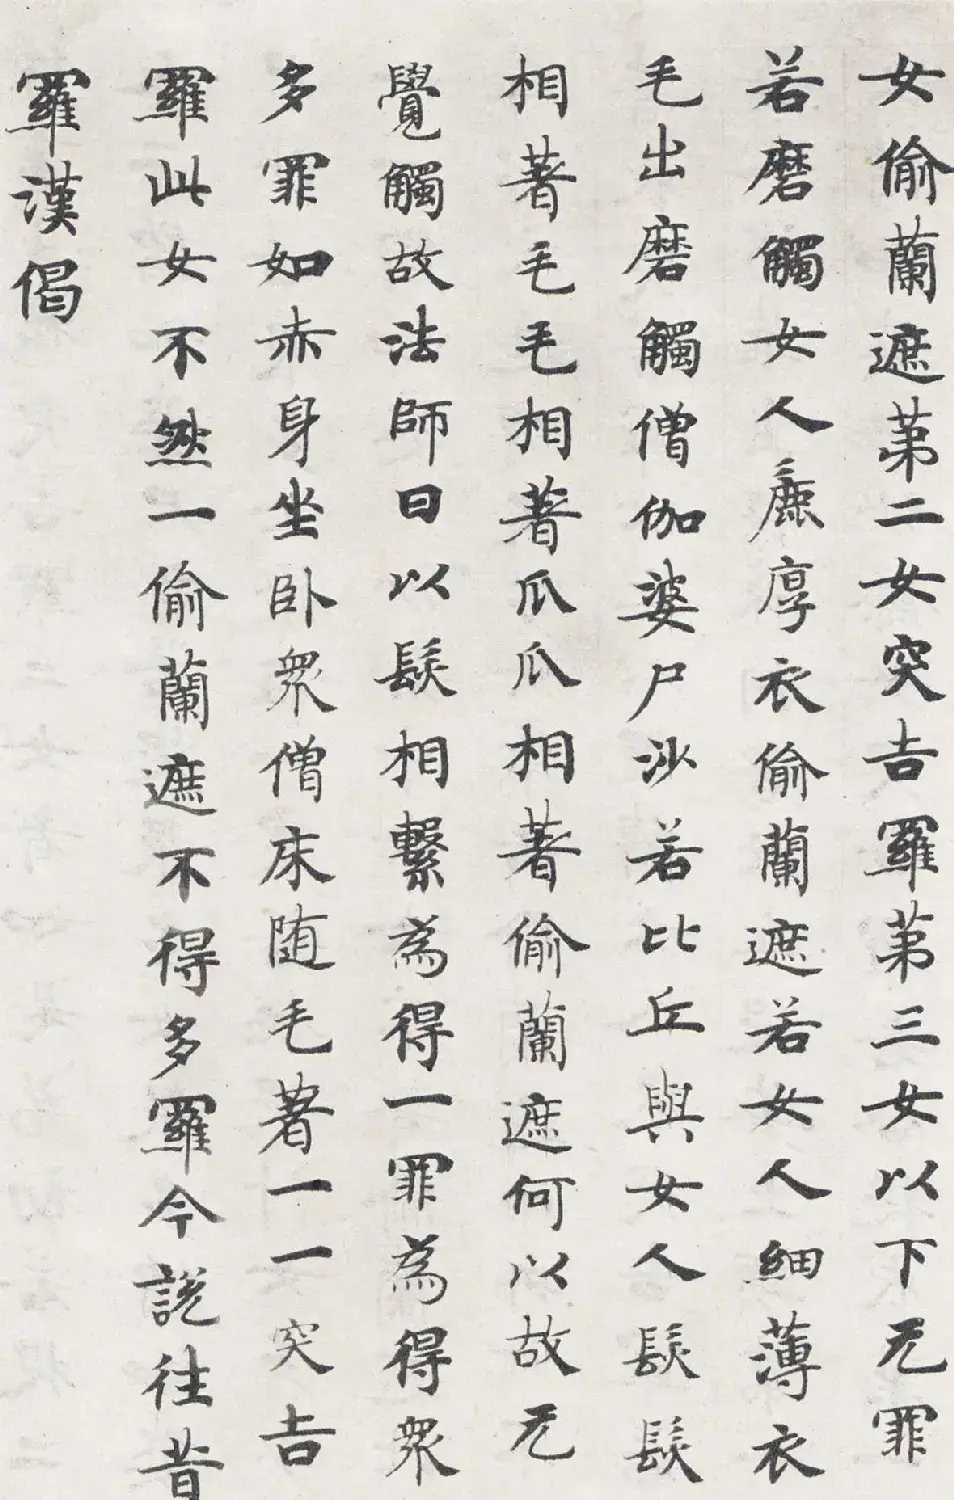 女偷蘭遮苐二女突吉羅苐三女以下无罪
若磨觸女人麁厚衣偷蘭遮若女人細薄衣
毛出磨觸僧伽婆尸沙若比丘與女人髮髮
相著毛毛相著爪爪相著偷蘭遮何以故无
覺觸故法師曰以髮相繫為得一罪為得衆
多罪如赤身坐卧衆僧床随毛著一一突吉
羅此女不然一偷蘭遮不得多羅今說往昔
羅漢偈